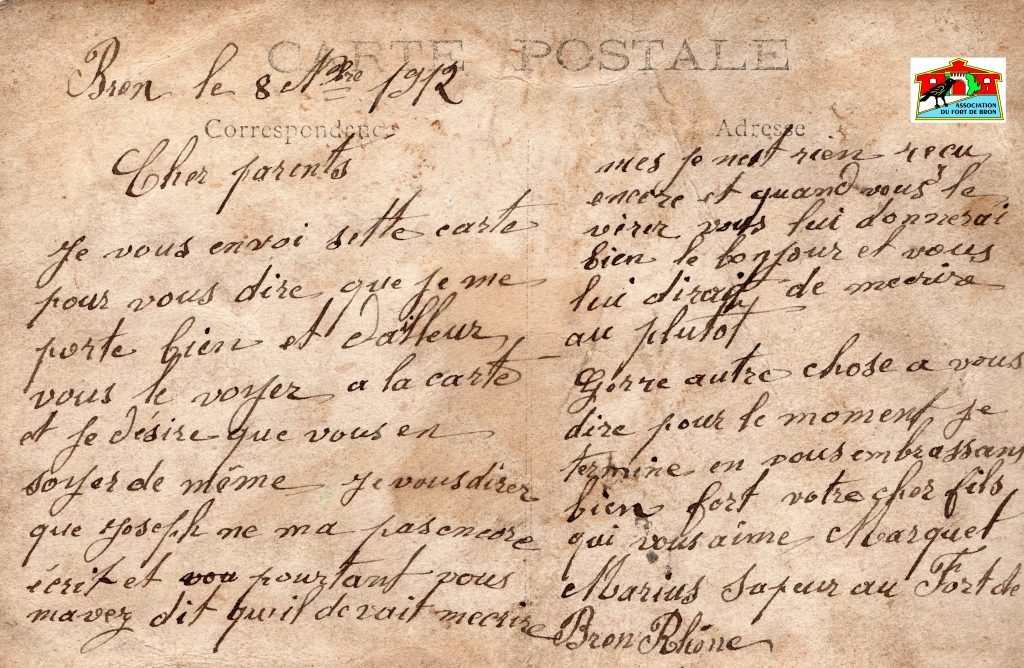 CARTE POSTALE
Bron le 8 Nbre 1912
ASSOCIATION
DU FORT DE BRON
Correspondance
Adresse
Cher parents
Je vous envoi sette carte
pour vous dire que je me
porte bien et dailleur
vous le voyer a la carte
et Je désire que vous en
soyer de même Je vous direr
que Joseph ne ma pas encore
écrit et pourtant vous
mavez dit quil devait mecrire
mes je nest rien recu
encore et quand vous le
virer vous lui donnerai
bien le bonjour et vous
lui dirait de mecrire
au plutot
autre chose a vous
dire pour le moment Je
termine en vous embrassant
bien fort votre cher fils
qui vous aime Marquet
Marius Sapeur au Fort de
Bron Rhône